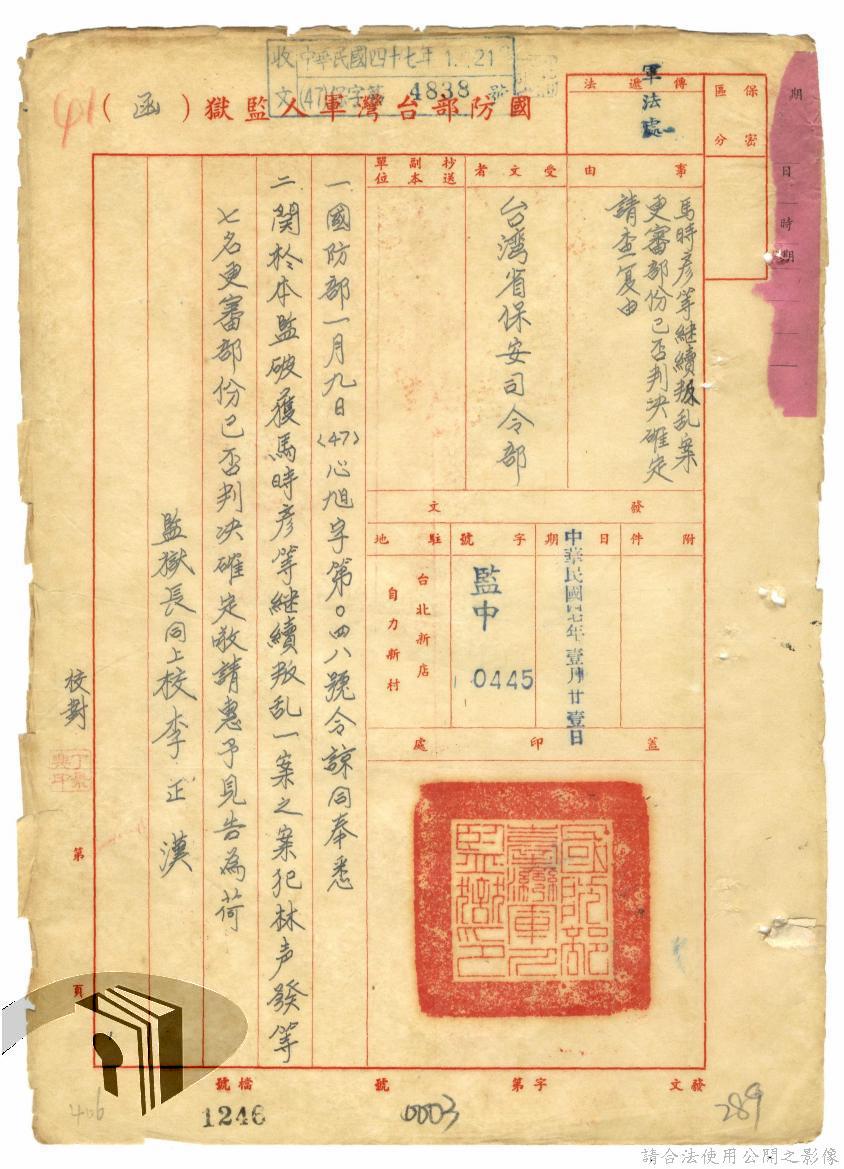 收文 中華民國四十七年 1. 21
(47)保字第 4838 號
國防部台灣軍人監獄（函）
保密區分
傳遞法
軍法處
期
日
時
期
事由
馬時彥等継續叛乱案
更審部份已否判决確定
請查复由
受文者
台灣省保安司令部
抄送副本單位
發文
附件
日期
中華民國四七年壹月廿壹日
字號
監中
0445
駐地
台北新店
自力新村
蓋印處
國防部
臺灣軍人
監獄印
一國防部一月九日(47)心旭字第〇四八號令諒同奉悉
二関於本監破獲馬時彥等継續叛乱一案之案犯林声發等
七名更審部份已否判决確定敬請惠予見告為荷
監獄長同上校李正漢
校對
第
頁
發文
字第
號
檔號
1246
0003
289
406
請合法使用公開之影像